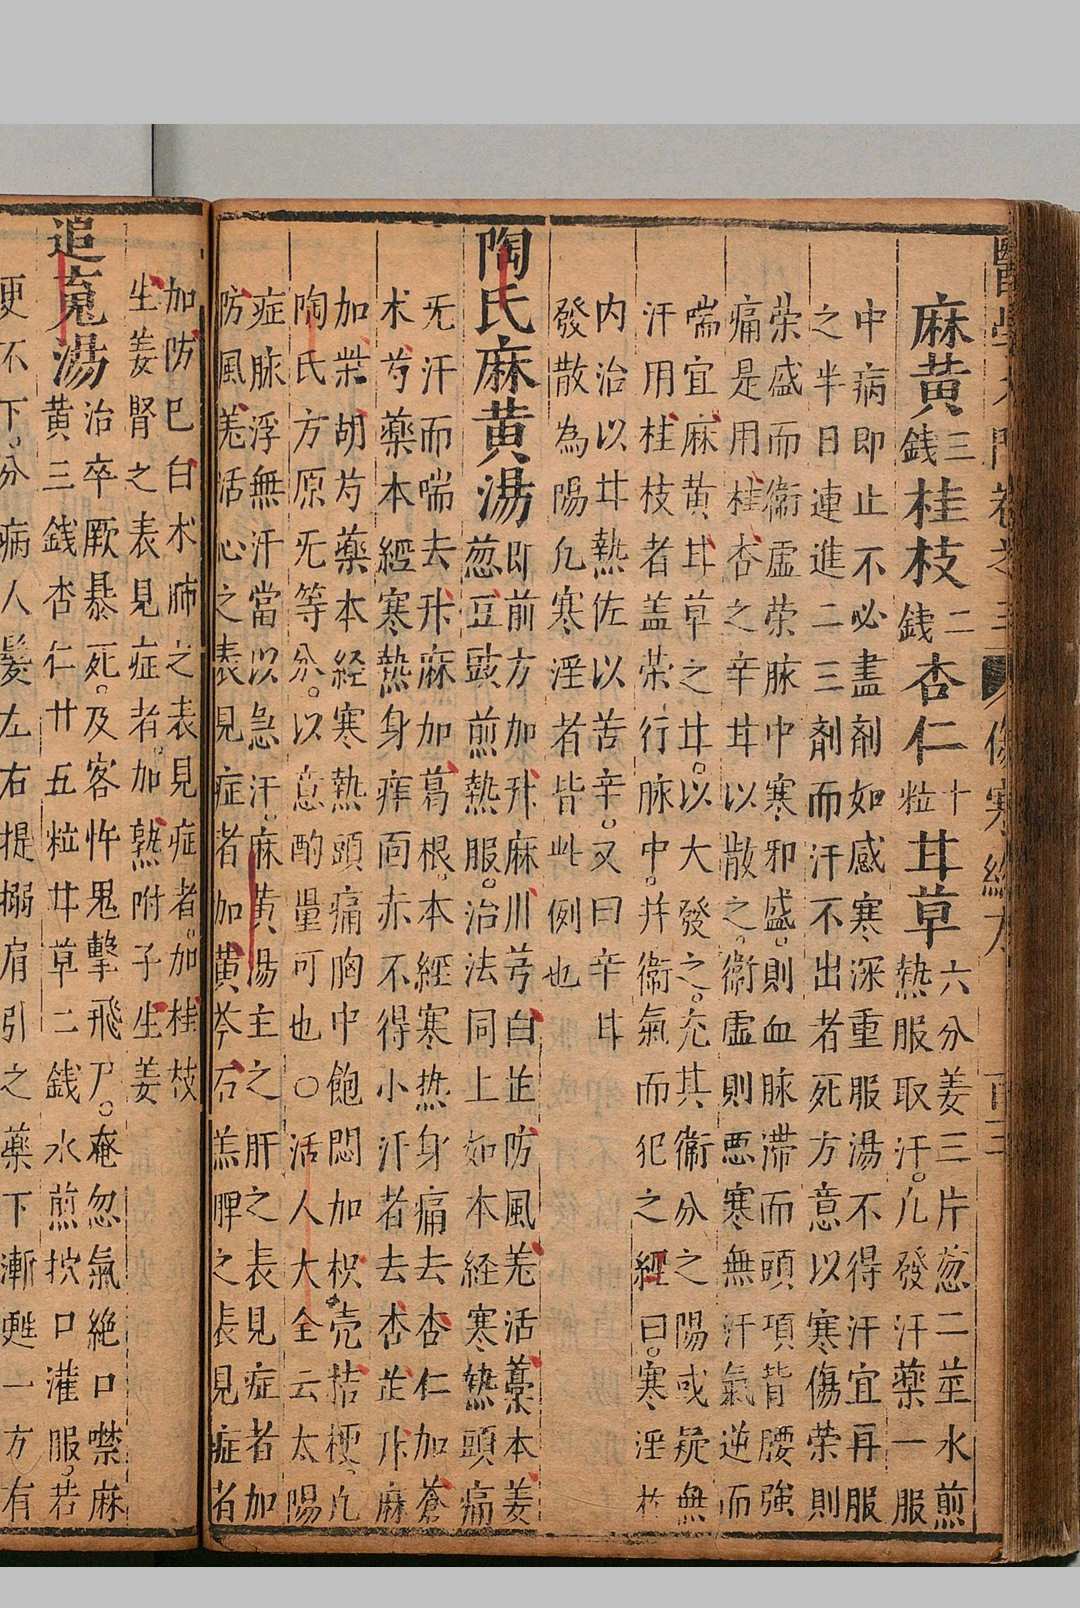 麻黄三錢桂枝二錢杏仁十粒甘草六分姜三片葱二莖水煎
熱服取汗。凡發汗藥一服
中病即止不必盡劑如感寒深重服湯不得汗宜再服
之半日連進二三劑而汗不出者死方意以寒傷荣則
荣盛而衞虛荣脉中寒邪盛。則血脉滯而頭項背腰強
痛是用桂杏之辛甘以散之。衞虛則悪寒無汗氣逆而
喘宜麻黄甘草之甘。以大發之。充其衞分之陽或疑無
汗用桂枝者盖荣行脉中。并衞氣而犯之經曰。寒淫
内治以甘熱佐以苦辛。又曰辛甘
發散為陽凢寒淫者皆此例也
陶氏麻黄湯即前方加升麻川芎白芷防風羌活藁本姜
葱豆豉煎熱服。治法同上如本経寒熱頭痛
旡汗而喘去升麻加葛根。本經寒热身痛去杏仁加蒼
术芍藥本經寒熱身痒面赤不得小汗者去杏芷升麻
加柴胡芍藥本经寒熱頭痛胸中飽悶加枳壳桔梗。凢
陶氏方原旡等分。以意酌量可也〇活人大全云太陽
症脉浮無汗當以急汗。麻黄湯主之肝之表見症者加
防風羗活心之表見症者加黄芩石羔脾之表見症者
加防巳白术肺之表見症者。加桂枝
生姜腎之表見症者。加熟附子生姜
追䰟湯治卒厥暴死。及客忤鬼擊飛尸。奄忽氣絶口噤麻
黄三錢杏仁廿五粒甘草二錢水煎挍口灌服。若
更不下。分病人髮左右提搦肩引之藥下漸甦一方有